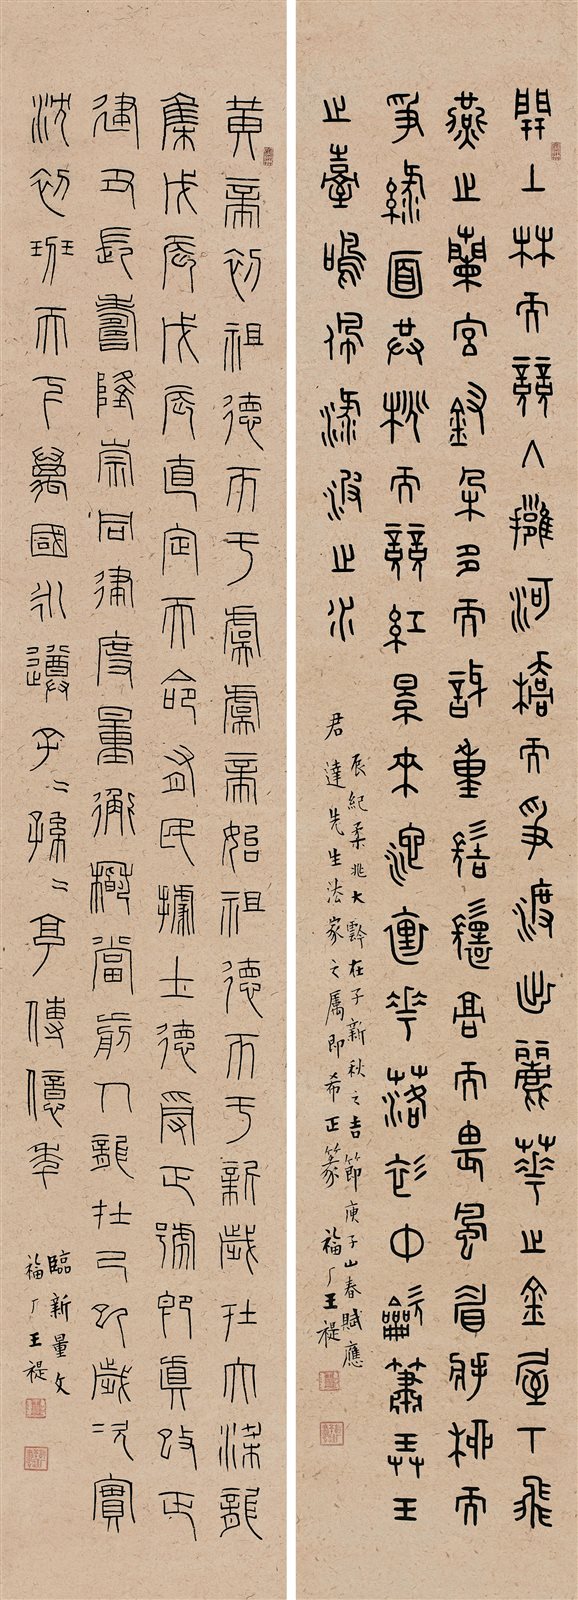 開上林而競入擁河橋而爭渡出麗華之金屋下飛
燕之蘭宮釵朵多而訝重髻鬟高而畏風眉將柳而
爭綠面共桃而競紅景來池裏花落衫中龡簫弄玉
之臺鳴佩淩波之水
辰紀柔兆大在子新秋之吉節庚子山春賦應
君達先生法家之属即希正篆 福厂王禔
黃帝初祖德帀于虞虞帝始祖德帀于新歲在大梁龍
集戊辰戊辰直定天命有民據土德受正號即真改正
建丑長壽隆崇同律度量衡稽當前人龍在己巳歲次實
沈初班天下萬國永遵子=孫=享傳億年
臨新量文
福厂王禔